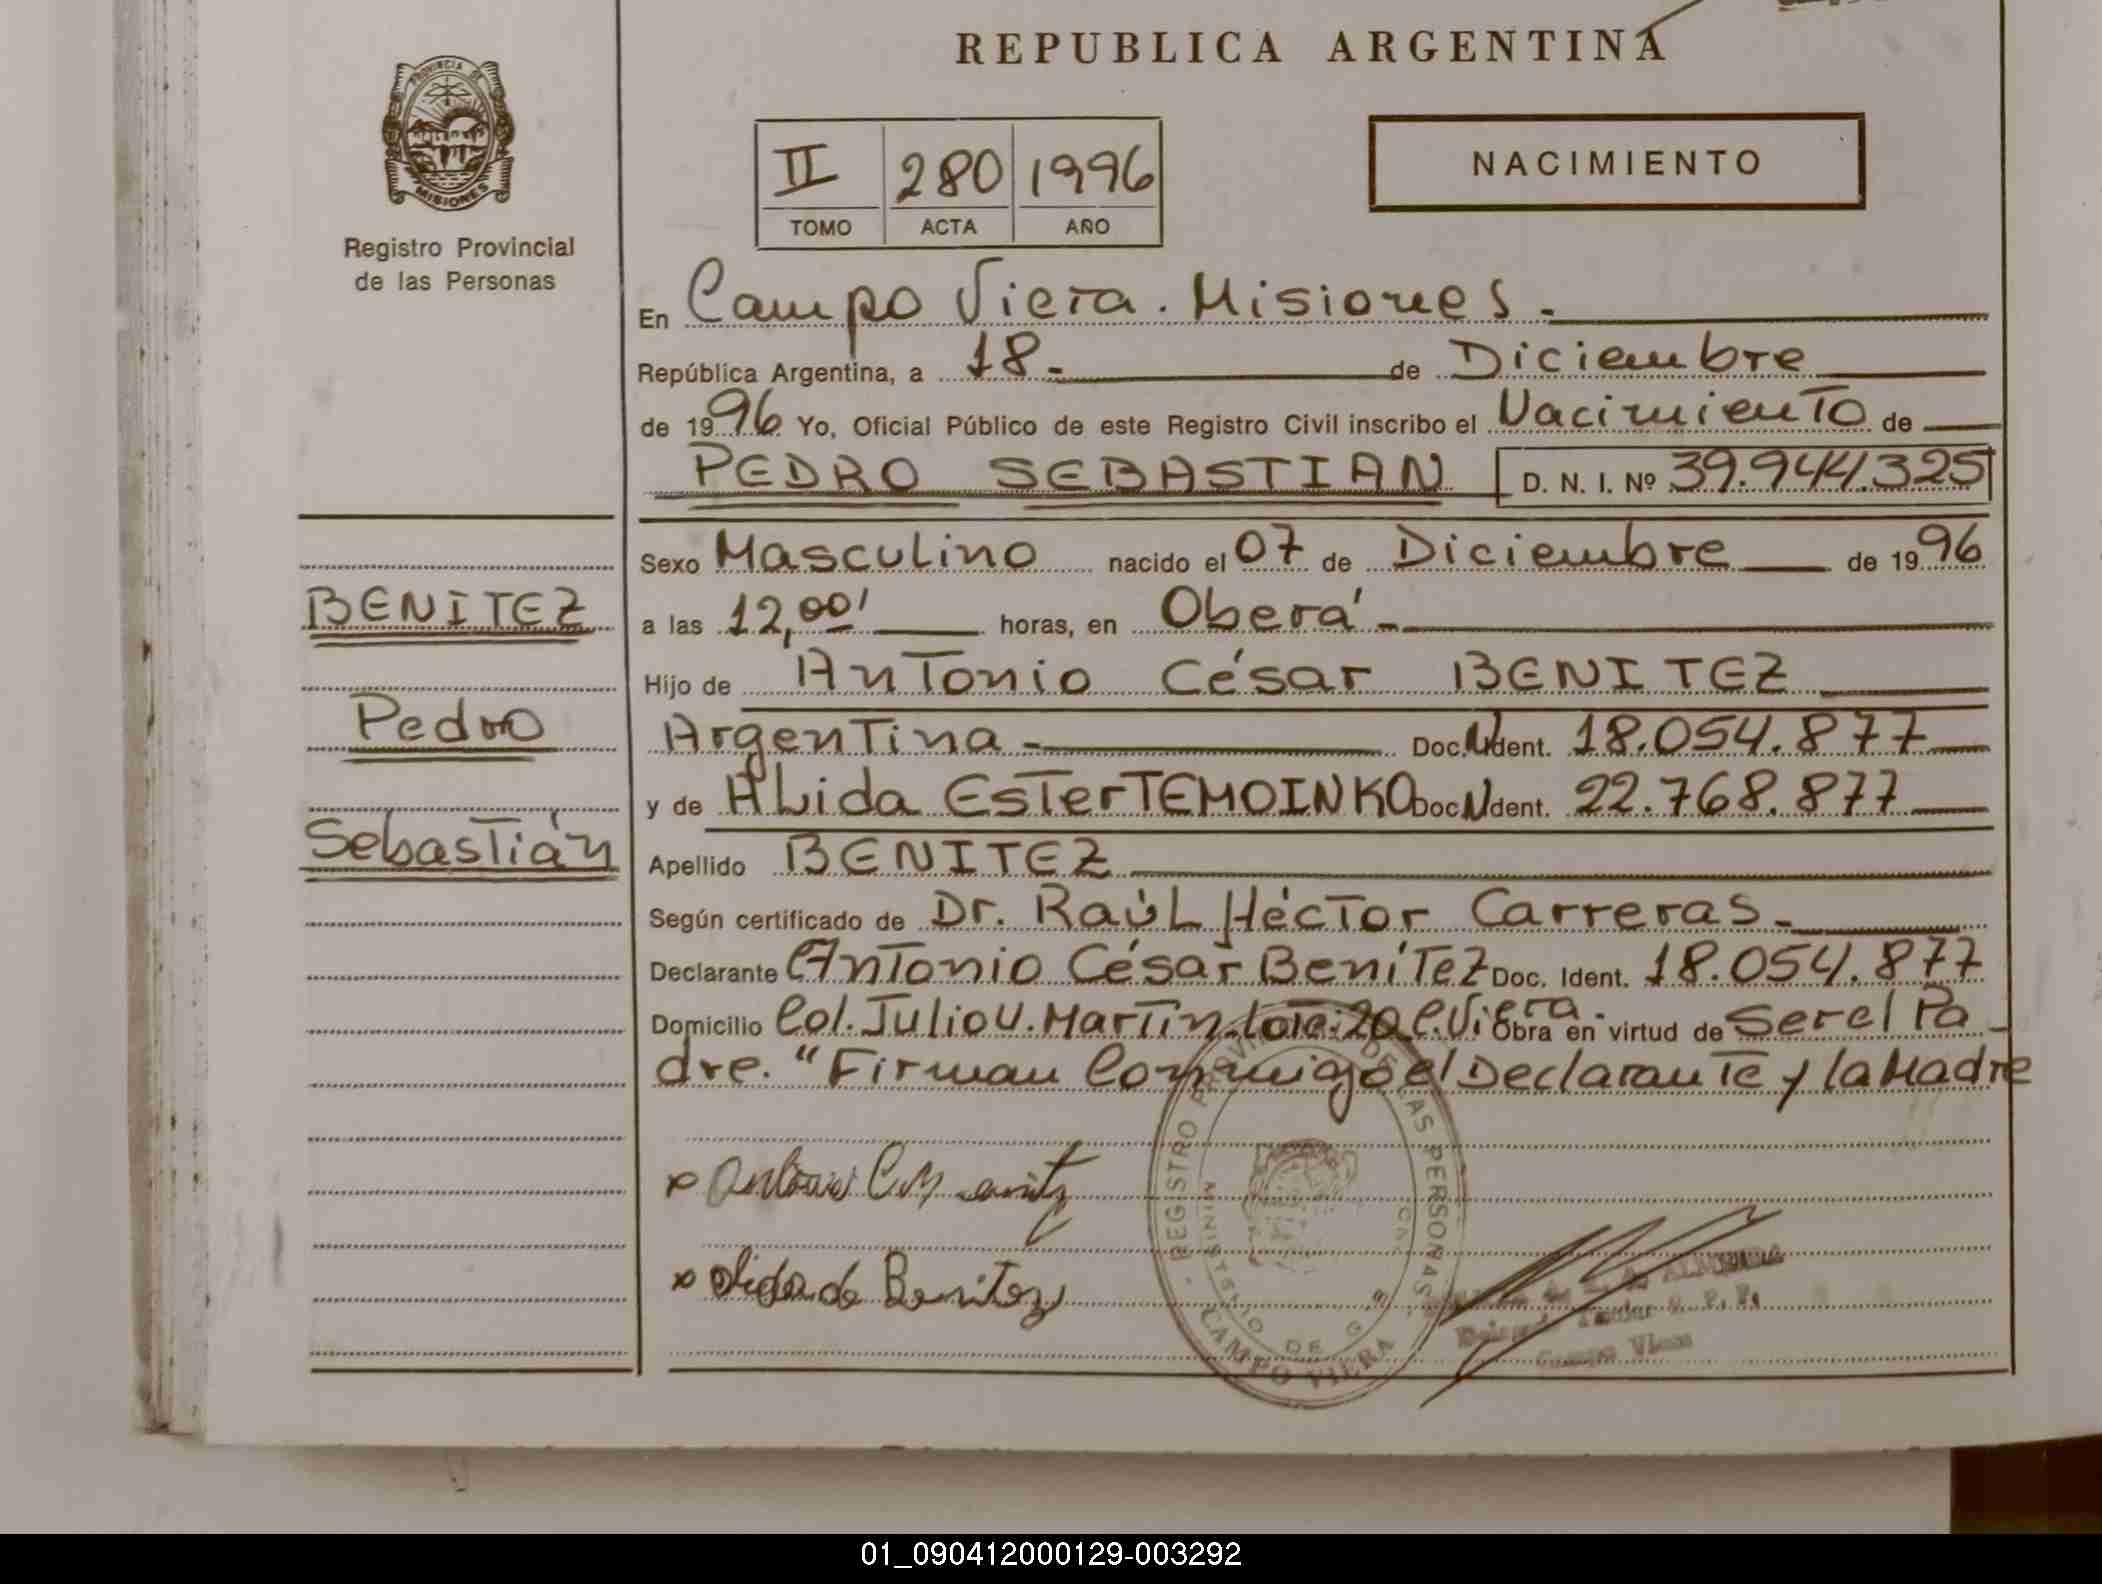 REPUBLICA ARGENTINA
PROVINCIA DE
MISIONES
Registro Provincial
de las Personas
II 280 1996
TOMO ACTA AÑO
NACIMIENTO
En Campo Viera. Misiones.-
República Argentina, a 18.- de Diciembre
de 1996 Yo, Oficial Público de este Registro Civil inscribo el Nacimiento de
PEDRO SEBASTIAN D. N. I. Nº 39.944.325
Sexo Masculino nacido el 07 de Diciembre de 1996
BENITEZ
a las 12,00' horas, en Oberá-
Hijo de Antonio César BENITEZ
Pedro
Argentina- Doc. N Ident. 18.054.877
y de ALida Ester TEMOINKO Doc N Ident. 22.768.877
Sebastián
Apellido BENITEZ
Según certificado de Dr. RaúL Héctor Carreras-
Declarante Antonio César Benítez Doc. Ident. 18.054.877
Domicilio Col. Julio U. Martín. Lote: 20 C. Viera. Obra en virtud de ser el Pa-
dre. "Firman Conmigo el Declarante y la Madre
REGISTRO PROVINCIAL DE LAS PERSONAS
MINISTERIO DE G
CAMPO VIERA
Antonio
Alida de Benitez
ALMEIDA
Campo Viera
01_090412000129-003292